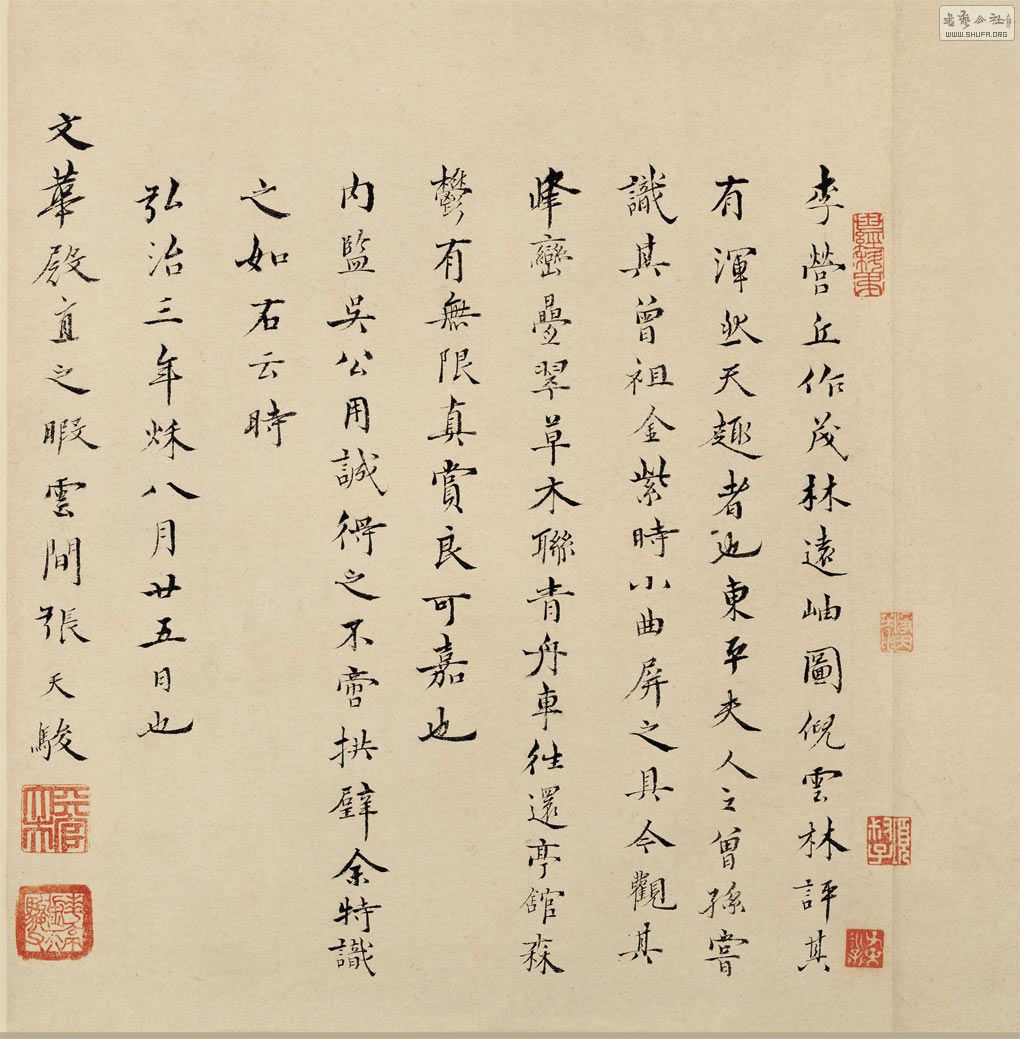 李營丘作茂林遠岫圖倪雲林評其
有渾然天趣者也東平夫人之曾孫嘗
識其曾祖金紫時小曲屏之具今觀其
峰巒疊翠草木聯青舟車往還亭館森
鬱有無限真賞良可嘉也
內監吳公用誠得之不啻拱璧余特識
之如右云時
弘治三年秌八月廿五日也
文華殿直之暇雲間張天駿
WWW.SHUFA.ORG